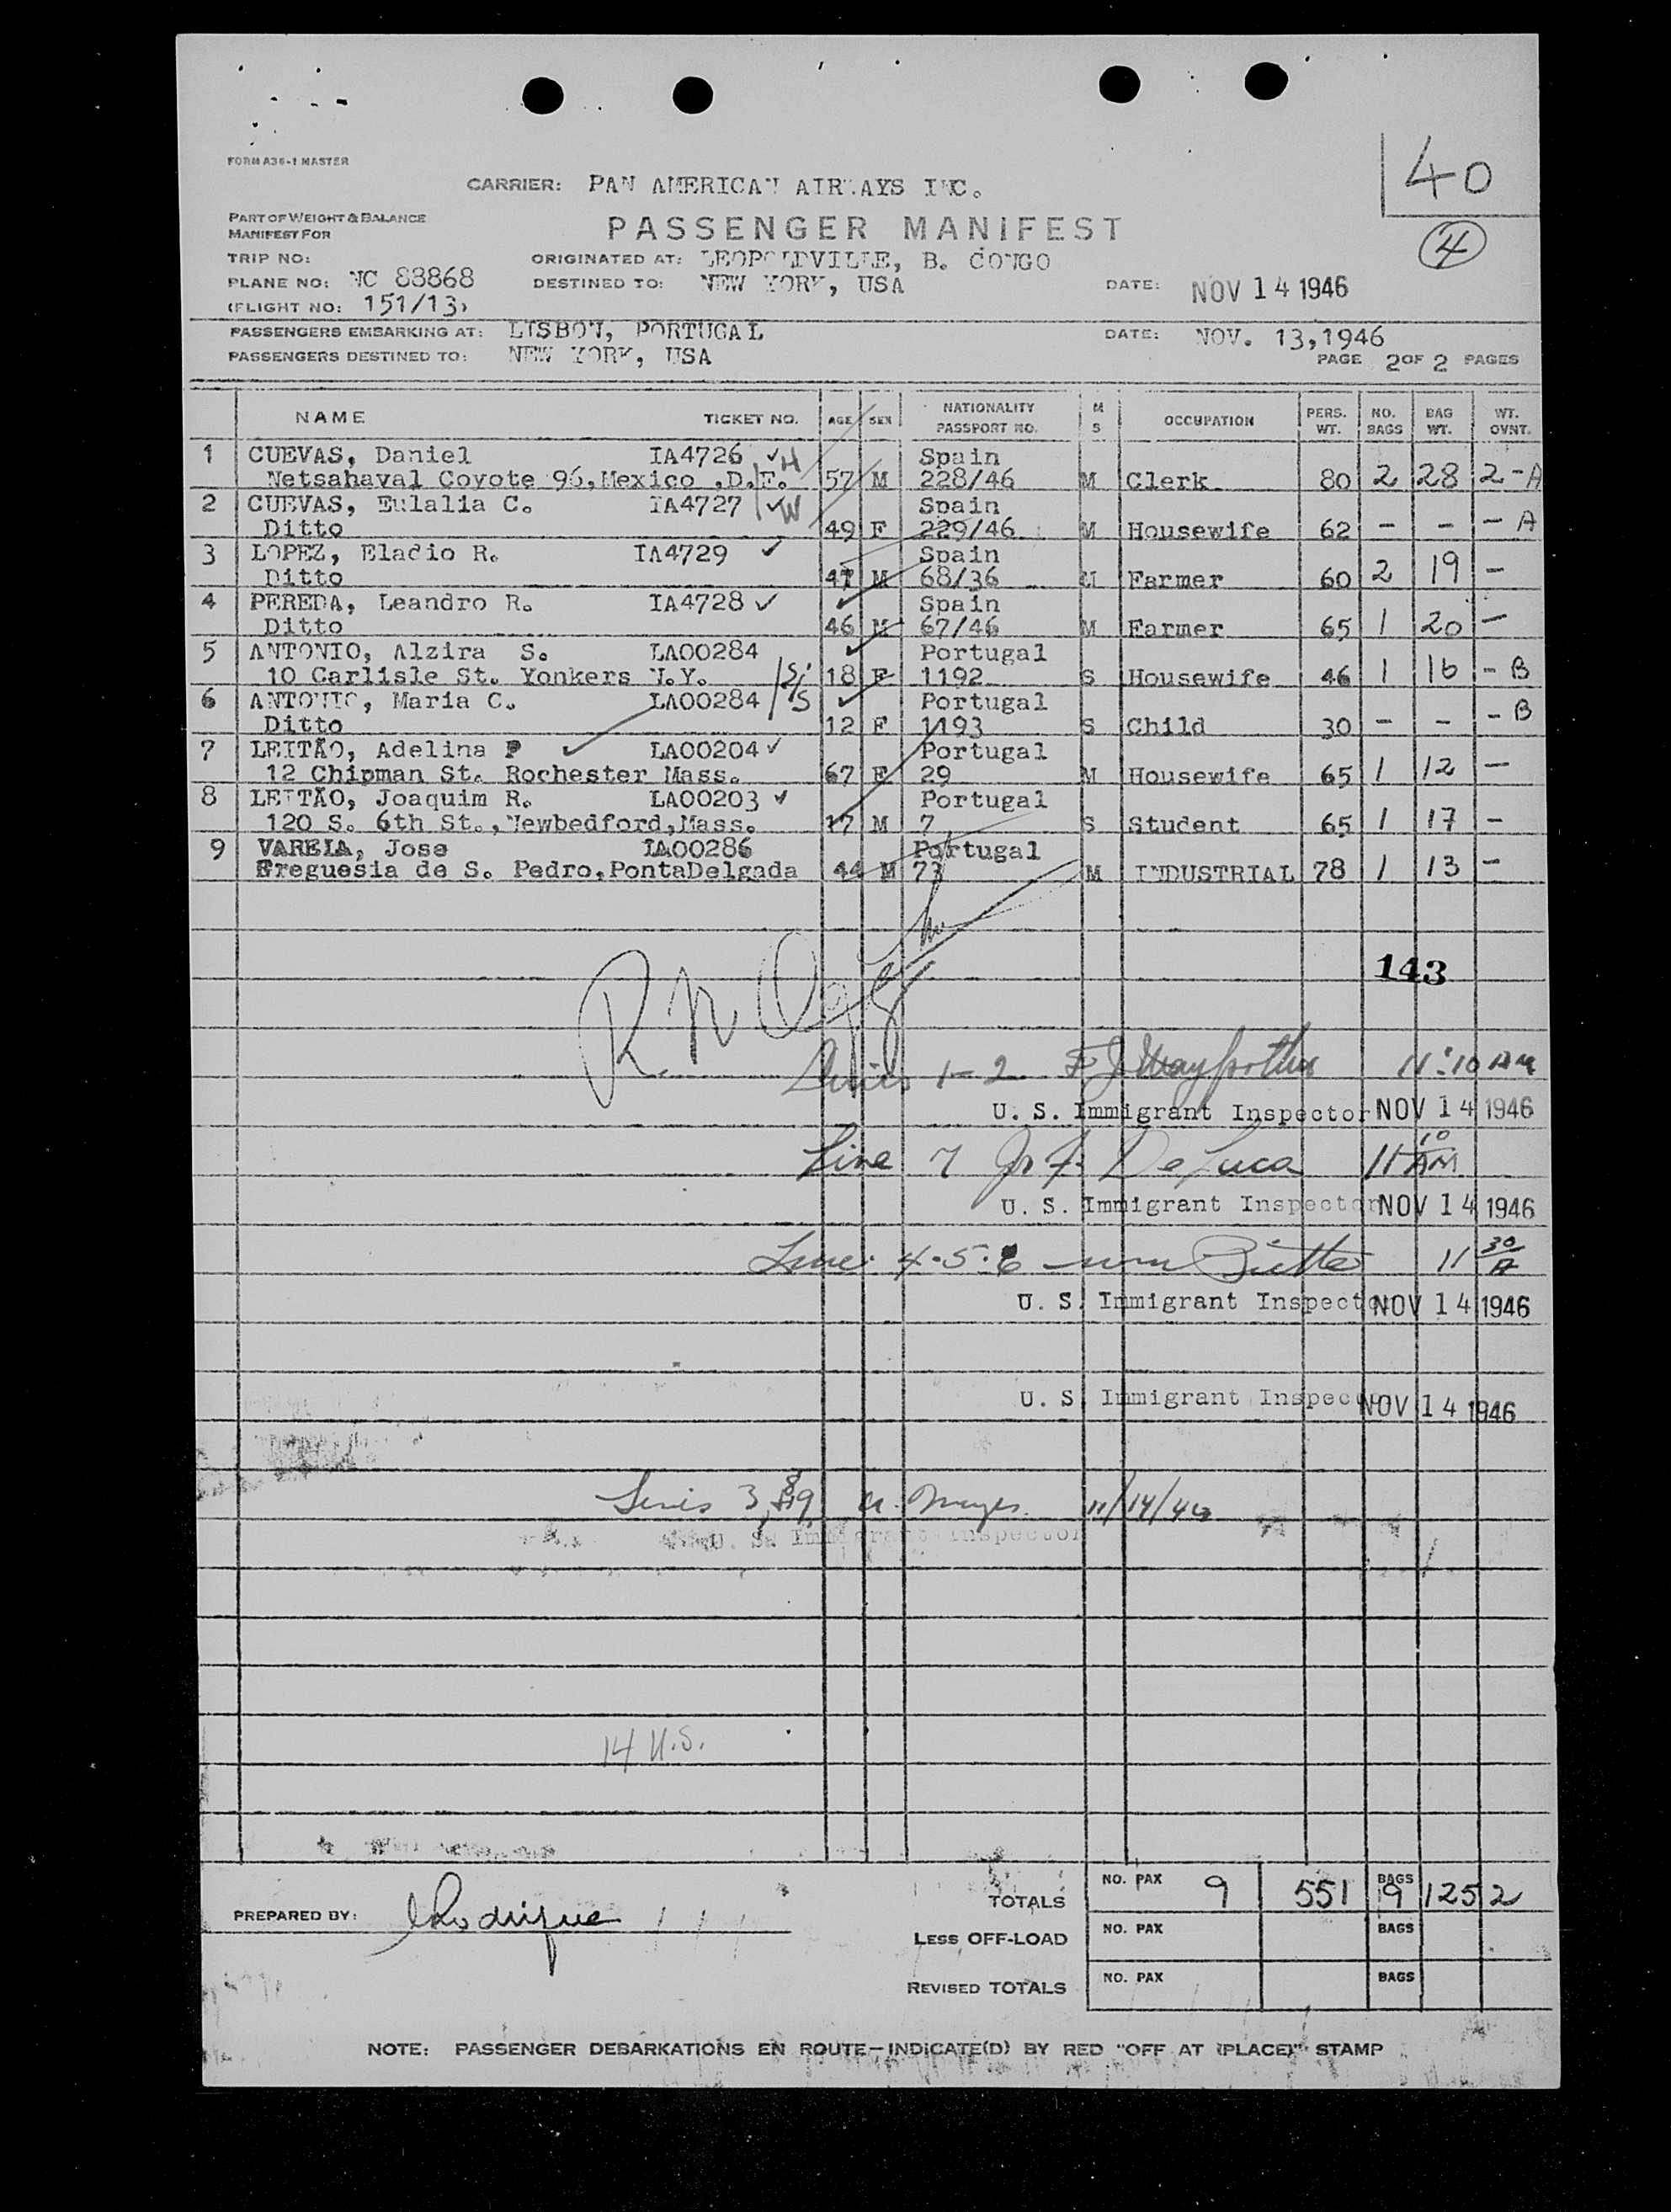 40
FORM A36-1 MASTER
CARRIER: PAN AMERICAN AIRWAYS INC.
PART OF WEIGHT & BALANCE
MANIFEST FOR
PASSENGER MANIFEST
4
TRIP NO: ORIGINATED AT: LEOPOLDVILLE, B. CONGO
PLANE NO: NC 88868 DESTINED TO: NEW YORK, USA DATE: NOV 14 1946
(FLIGHT NO: 151/13)
PASSENGERS EMBARKING AT: LISBON, PORTUGAL DATE: NOV. 13, 1946
PASSENGERS DESTINED TO: NEW YORK, USA PAGE 2 OF 2 PAGES
NAME TICKET NO. AGE SEX NATIONALITY PASSPORT NO. M S OCCUPATION PERS. WT. NO. BAGS BAG WT. WT. OVNT.
1 CUEVAS, Daniel IA4726 ✓ H Spain
Netsahaval Coyote 96, Mexico ,D.F. 57 M 228/46 M Clerk 80 2 28 2 - A
2 CUEVAS, Eulalia C. IA4727 ✓ W Spain
Ditto 49 F 229/46 M Housewife 62 - - - A
3 LOPEZ, Eladio R. IA4729 ✓ Spain
Ditto 47 M 68/36 M Farmer 60 2 19 -
4 PEREDA, Leandro R. IA4728 ✓ Spain
Ditto 46 M 67/46 M Farmer 65 1 20 -
5 ANTONIO, Alzira S. LA00284 Portugal
10 Carlisle St. Yonkers N.Y. 18 F 1192 S Housewife 46 1 16 - B
6 ANTONIO, Maria C. LA00284 Portugal
Ditto 12 F 1193 S Child 30 - - - B
7 LEITÃO, Adelina P LA00204 ✓ Portugal
12 Chipman St. Rochester Mass. 67 F 29 M Housewife 65 1 12 -
8 LEITÃO, Joaquim R. LA00203 ✓ Portugal
120 S. 6th St., Newbedford, Mass. 17 M 7 S Student 65 1 17 -
9 VARELA, Jose LA00286 Portugal
Freguesia de S. Pedro, PontaDelgada 44 M 73 M INDUSTRIAL 78 1 13 -
143
Lines 1-2 11:10 AM
U. S. Immigrant Inspector NOV 14 1946
Line 7 De Luca 11 10 AM
U. S. Immigrant Inspector NOV 14 1946
Line 4-5-6 11 30 A
U. S. Immigrant Inspector NOV 14 1946
U. S. Immigrant Inspector NOV 14 1946
Lines 3, 8, 9 11/14/46
U. S. Immigrant Inspector
14 U.S.
TOTALS NO. PAX 9 551 BAGS 9 125 2
PREPARED BY: Rodrigue
LESS OFF-LOAD NO. PAX BAGS
REVISED TOTALS NO. PAX BAGS
NOTE: PASSENGER DEBARKATIONS EN ROUTE—INDICATE(D) BY RED "OFF AT (PLACE)" STAMP